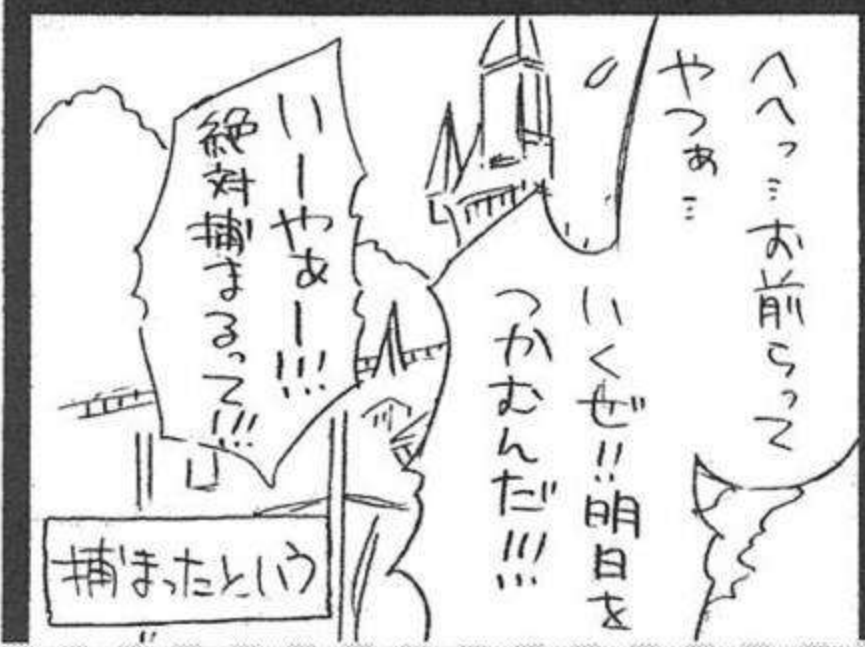 へへっ…お前らって
やつぁ…
いくぜ!!明日を
つかむんだ!!!
いーやぁー!!!
絶対捕まるって!!!
捕まったという